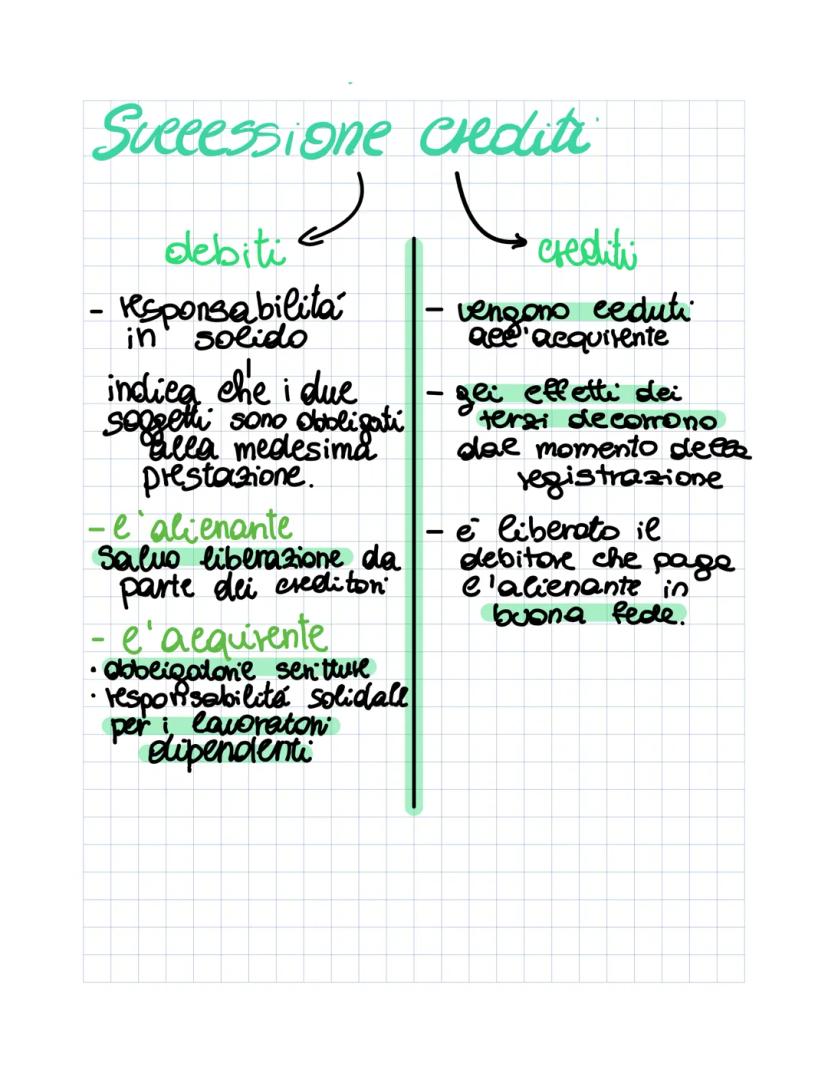 Successione crediti
debiti
- responsabilitá
in solido
indica che i due
soggetti sono obbligati
alla medesima
prestazione.
- l'alienante
salvo liberazione da
parte dei creditori
- l'acquirente
· obbligatorie scritture
· responsabilitá solidale
per i lavoratori
dipendenti
crediti
- vengono ceduti
all'acquirente
- gli effetti dei
terzi decorrono
dal momento della
registrazione
- e' liberato il
debitore che paga
l'alienante in
buona fede.